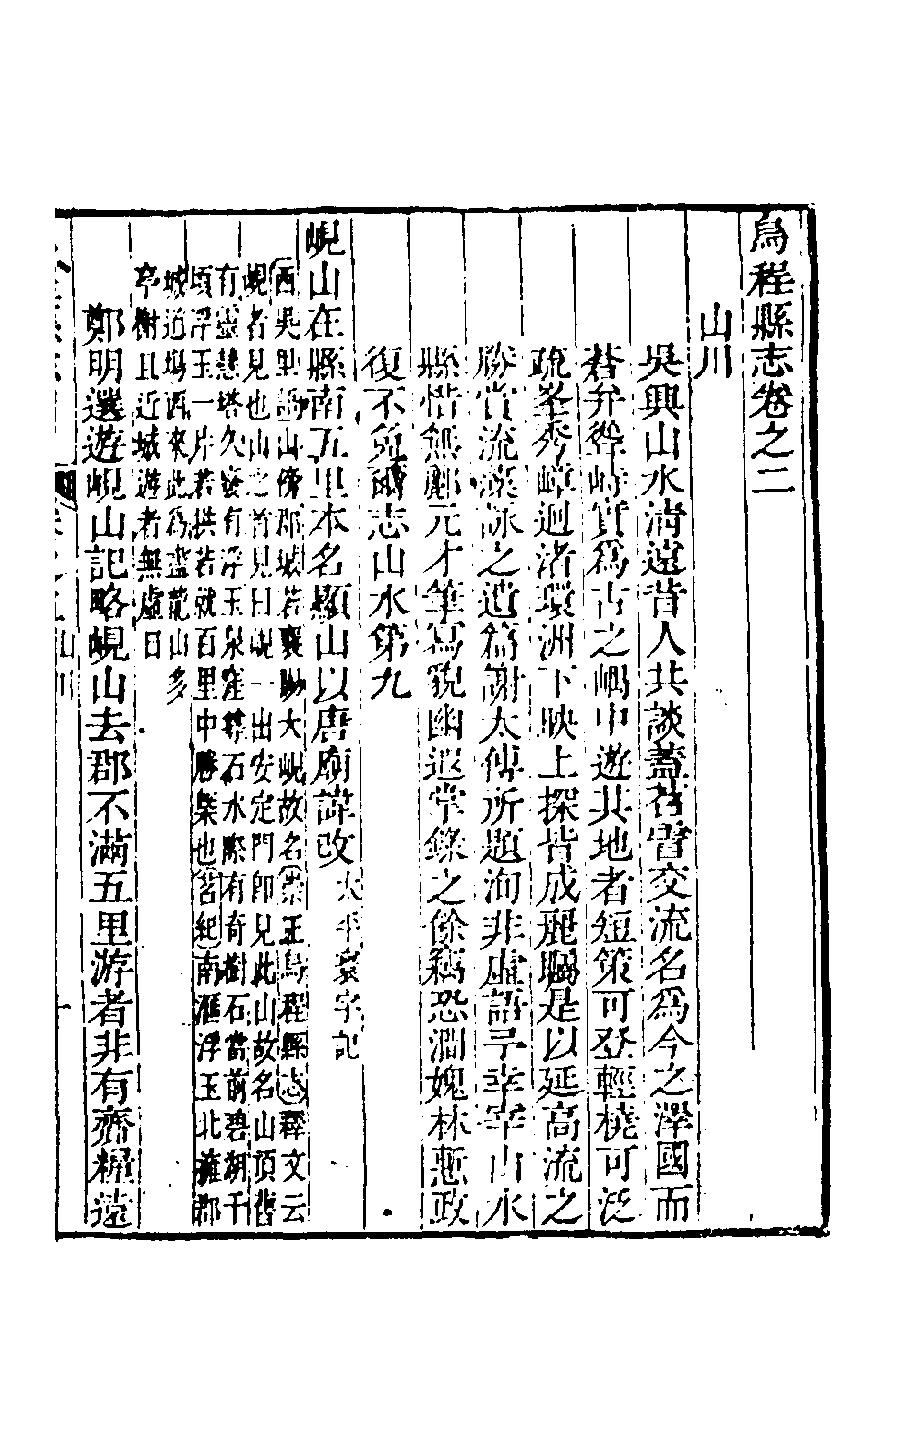 烏程縣志卷之二
山川
吳興山水清遠昔人共談蓋苕霅交流名為今之澤國而
蒼弁聳峙實為古之嵎中遊其地者短策可登輕橈可泛
疏峯秀嶂迴渚環洲下映上探皆成麗矚是以延高流之
勝賞流藻詠之遺篇謝太傅所題洵非虛語予幸宰山水
縣惜無酈元才筆寫貌幽遐掌錄之餘竊恐澗媿林慙政
復不免爾志山水第九
峴山在縣南五里本名顯山以唐廟諱改太平寰宇記
西吳里語山傍郡城若襄陽大峴故名崇正烏程縣志釋文云
峴者見也山之首見曰峴一出安定門即見此山故名山頂舊
有靈慧塔久廢有浮玉泉窪尊石水際有奇樹石當前碧湖千
頃浮玉一片若拱若就百里中勝槩也苕紀南滙浮玉北擁郡
城道場西來此為盡龍山多
亭榭且近城遊者無虛日
鄭明選遊峴山記略峴山去郡不滿五里游者非有齎糧遠
山川